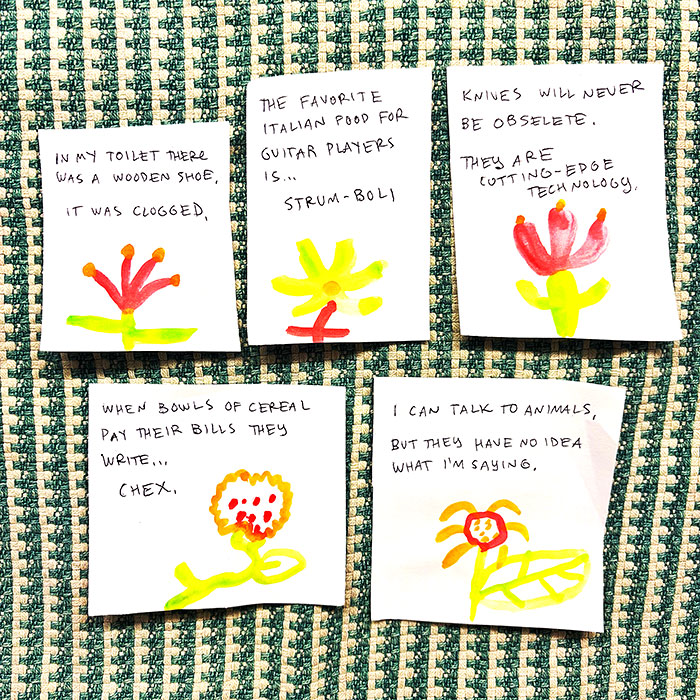 IN MY TOILET THERE
WAS A WOODEN SHOE.
IT WAS CLOGGED.
THE FAVORITE
ITALIAN FOOD FOR
GUITAR PLAYERS
IS...
STRUM-BOLI
KNIVES WILL NEVER
BE OBSELETE.
THEY ARE
CUTTING-EDGE
TECHNOLOGY.
WHEN BOWLS OF CEREAL
PAY THEIR BILLS THEY
WRITE...
CHEX.
I CAN TALK TO ANIMALS,
BUT THEY HAVE NO IDEA
WHAT I'M SAYING.